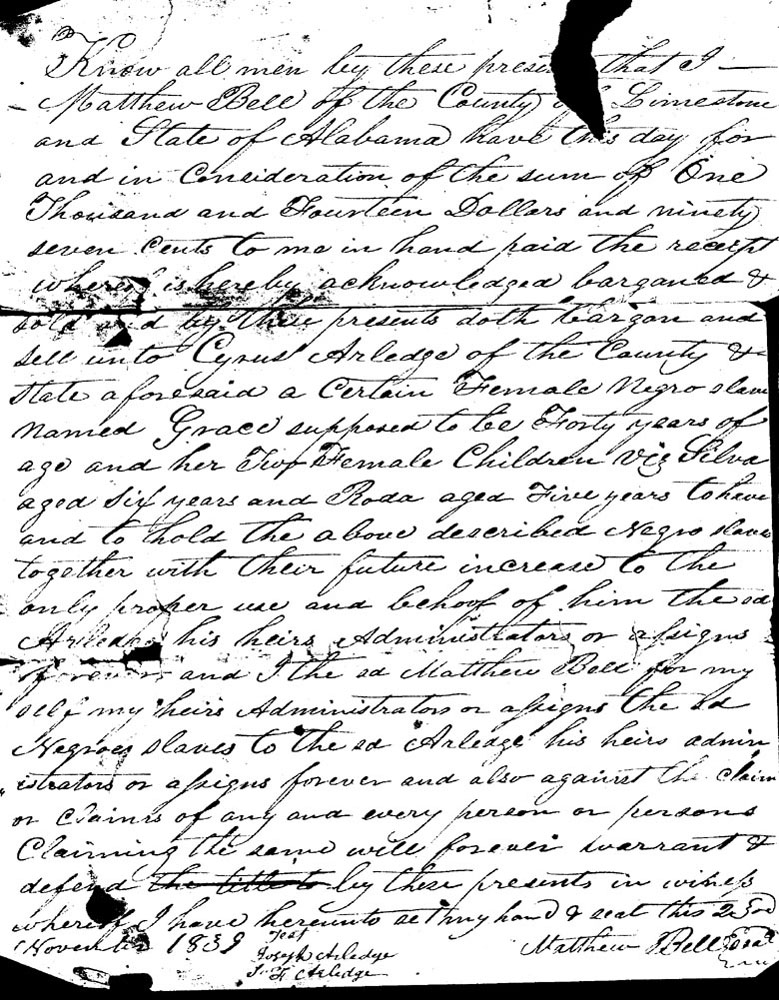 Know all men by these presents that I —
Matthew Bell of the County of Limestone
and State of Alabama have this day for
and in Concideration of the sum of One
Thousand and Fourteen Dollars and ninety
seven Cents to me in hand paid the receipt
whereof is hereby acknowledged barganed &
sold and by these presents doth bargan and
sell unto Cyrus Arledge of the County &
State aforesaid a Certain Female Negro slave
named Grace supposed to be Forty years of
age and her Two Female Children Viz Silva
aged Six years and Roda aged Five years to have
and to hold the above described Negro slaves
together with their future increase to the
only proper use and behoof of him the sd
Arledge his heirs Administrators or assigns
forever and I the sd Matthew Bell for my
self my heirs Administrators or assigns the sd
Negroes slaves to the sd Arledge his heirs admin
istrators or assigns forever and also against the claim
or Claims of any and every person or persons
Claiming the same will forever warrant &
defend the title to by these presents in witness
whereof I have hereunto set my hand & seal this
November 1839
Test
Joseph Arledge
Arledge
Matthew Bell